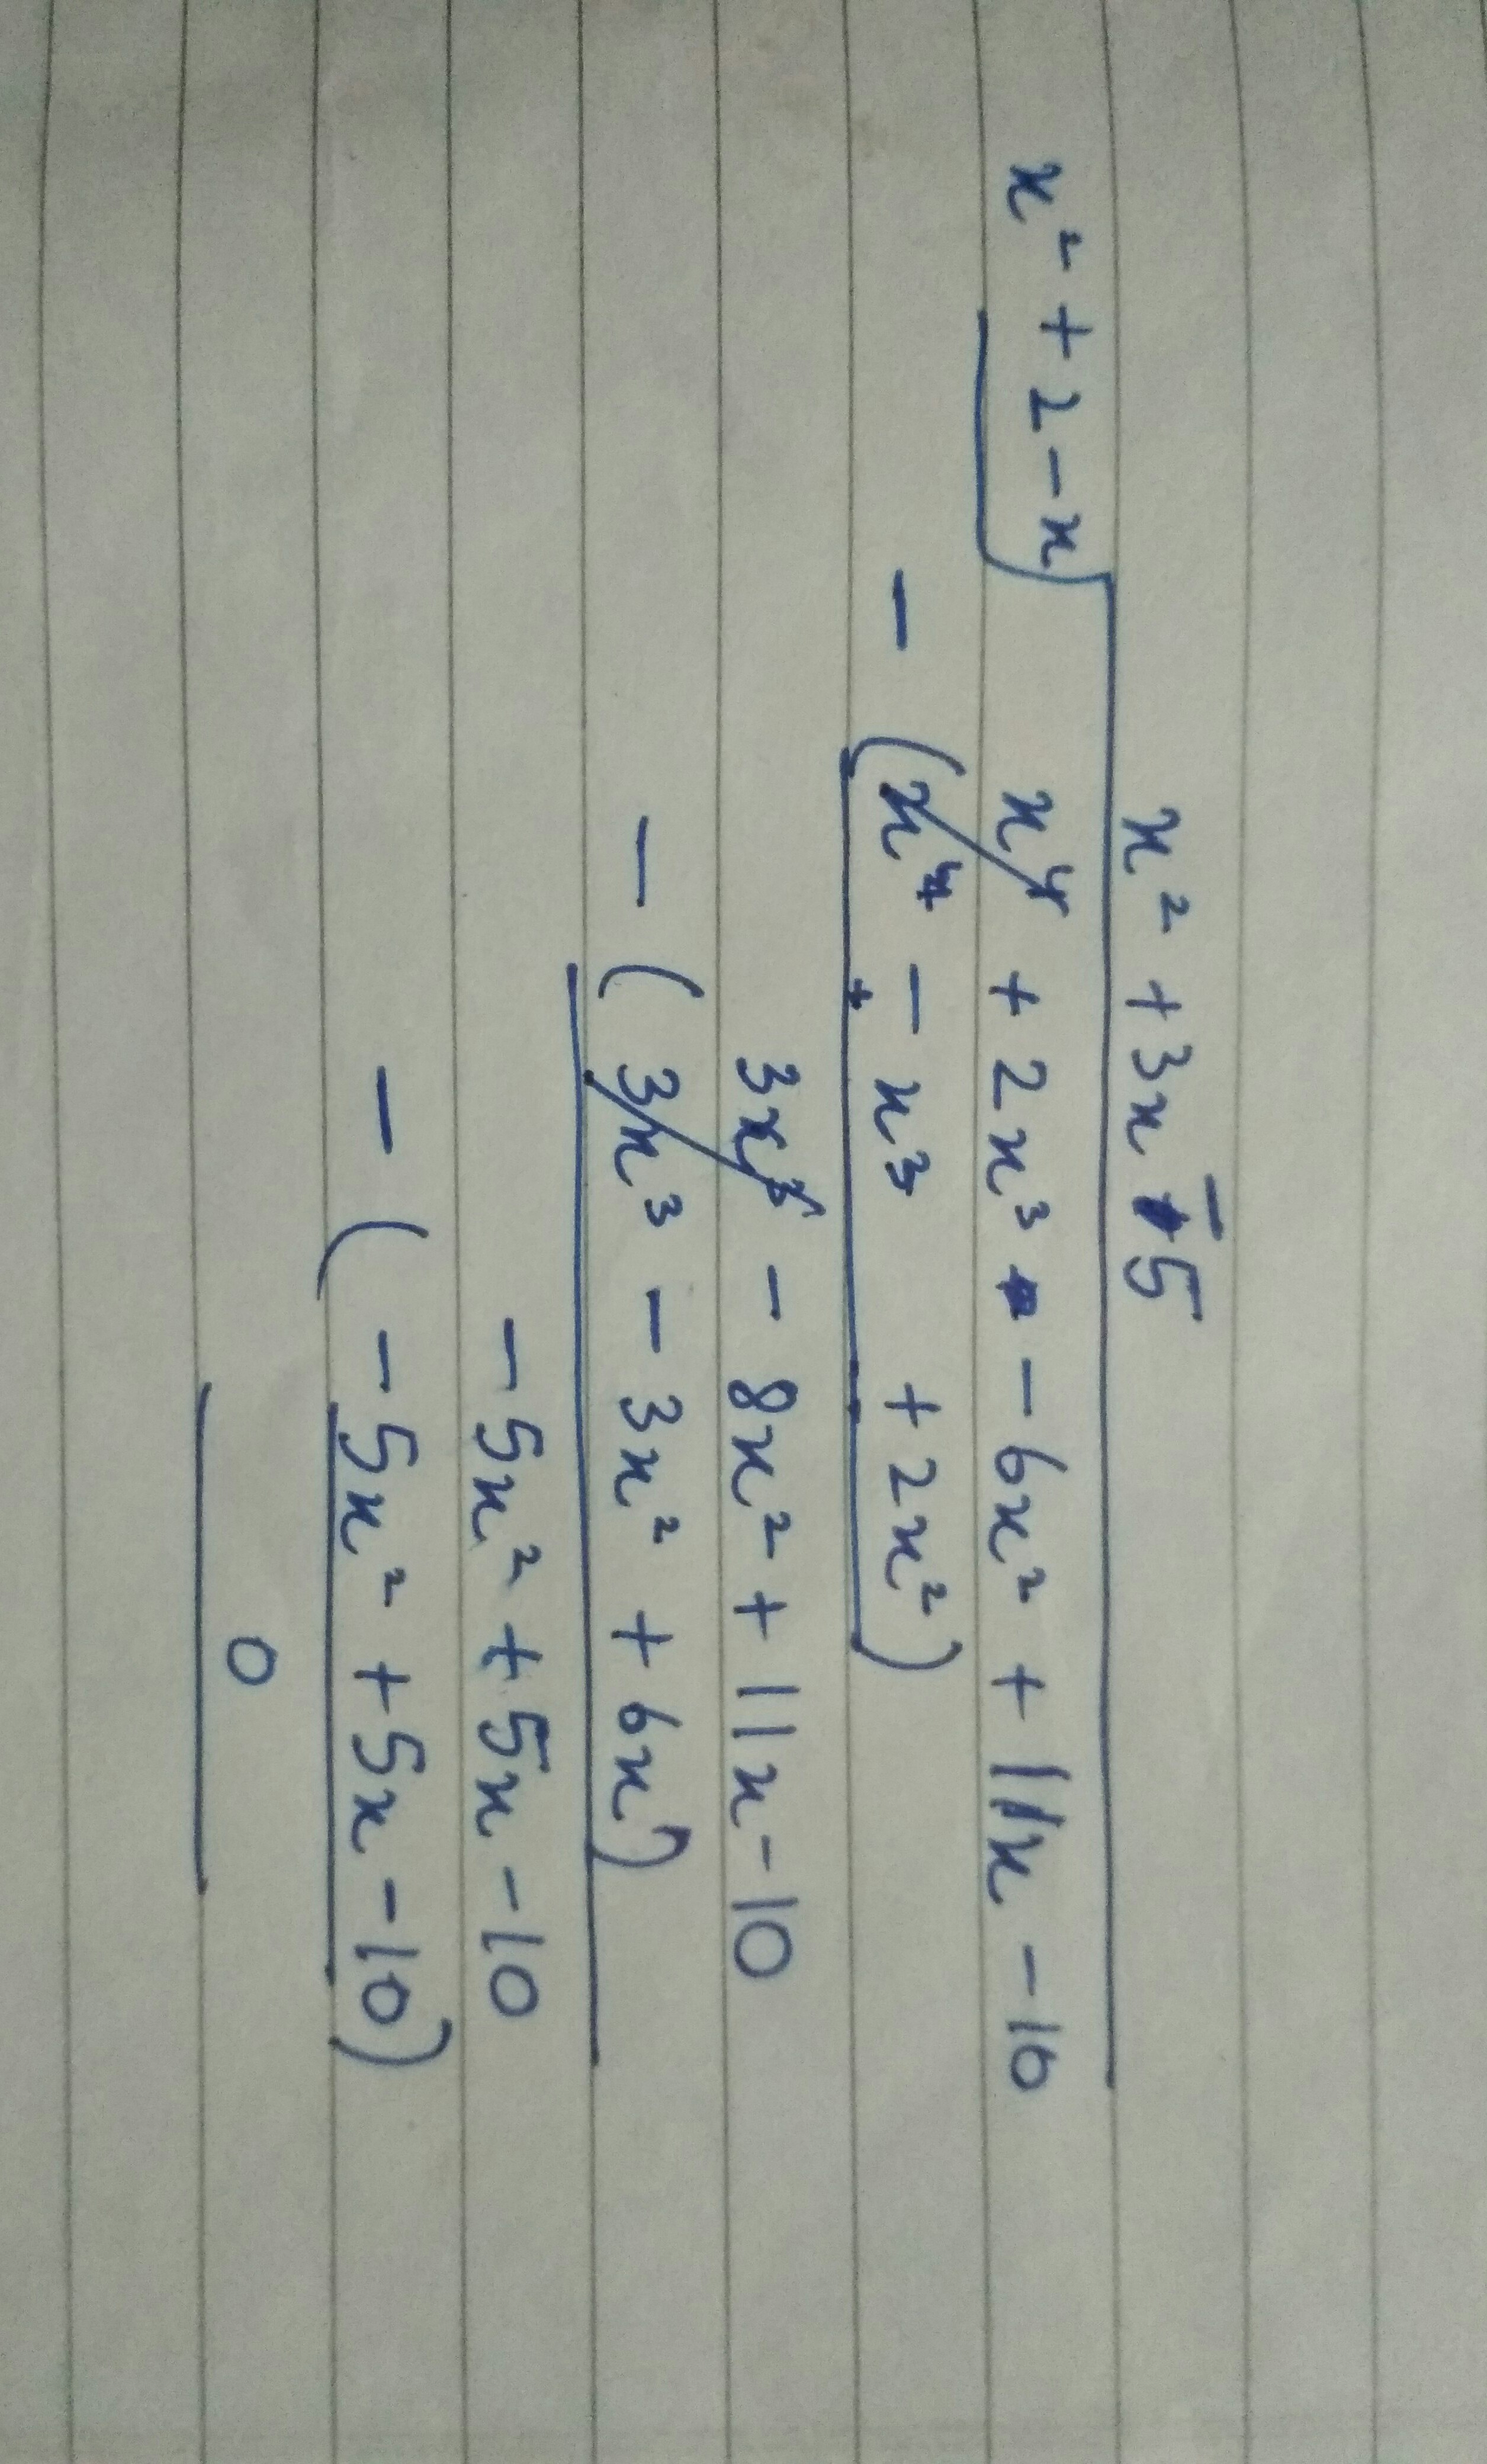 x² + 3x - 5
x² + 2 - x) x⁴ + 2x³ - 6x² + 11x - 10
- (x⁴ - x³ + 2x²)
+
3x³ - 8x² + 11x - 10
- (3x³ - 3x² + 6x)
- 5x² + 5x - 10
- (- 5x² + 5x - 10)
0